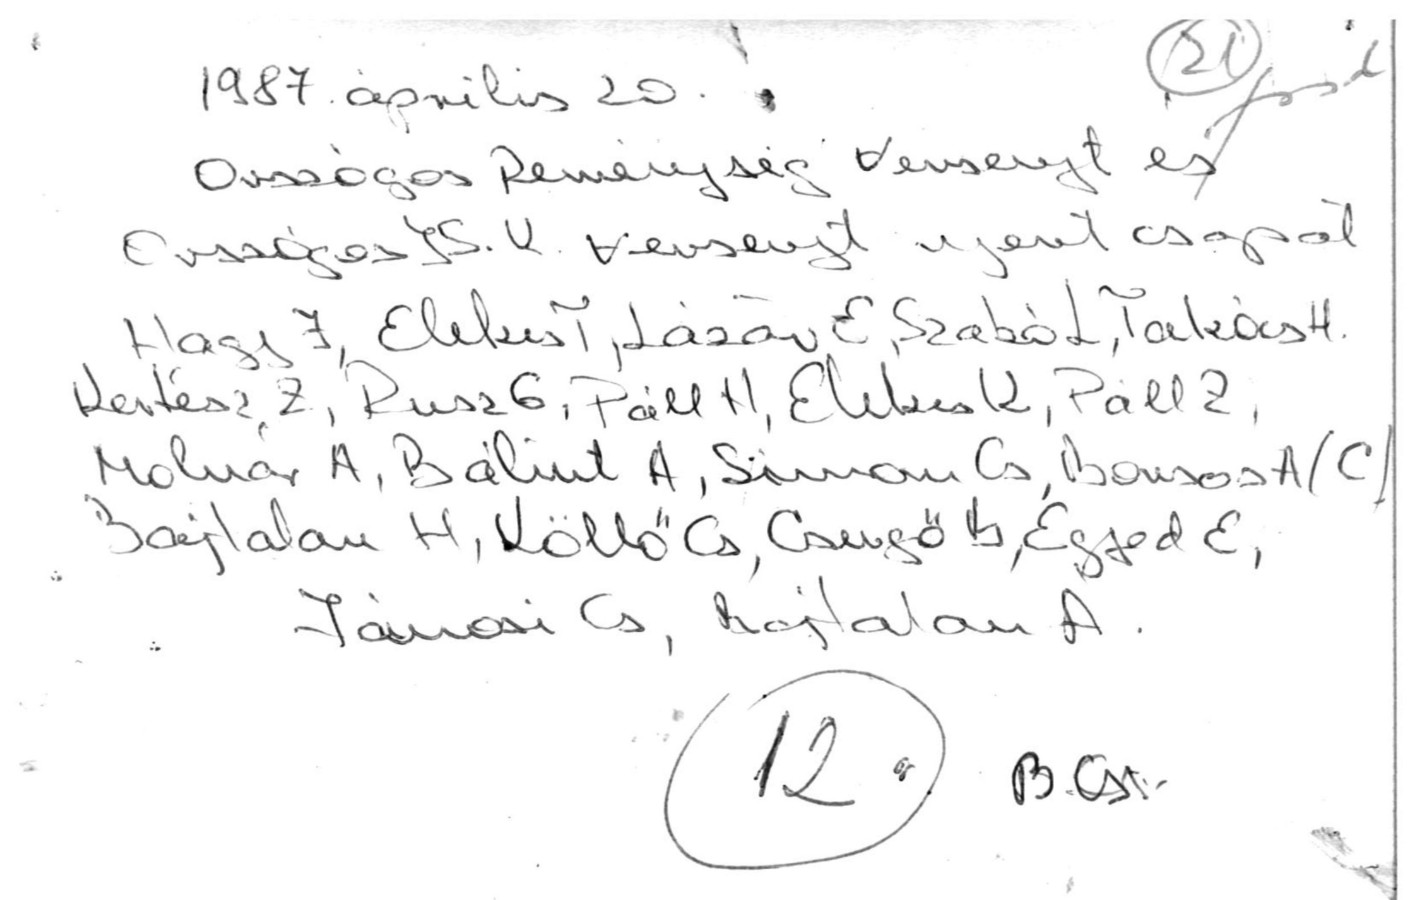 21
1987. április 20.
Országos Reménység Versenyt és
Országos I.S.K. versenyt nyert csapat
Nagy I, Elekes T, Lázár E, Szabó L, Takács H.
Kertész Z, Rusz G, Páll H, Elekes K, Páll Z,
Molnár A, Bálint A, Simon Cs, Bonsos A (C)
Bajtalan H, Köllő Cs, Csengő B, Egyed E,
Jánosi Cs, Bajtalan A.
12
B. Cst.